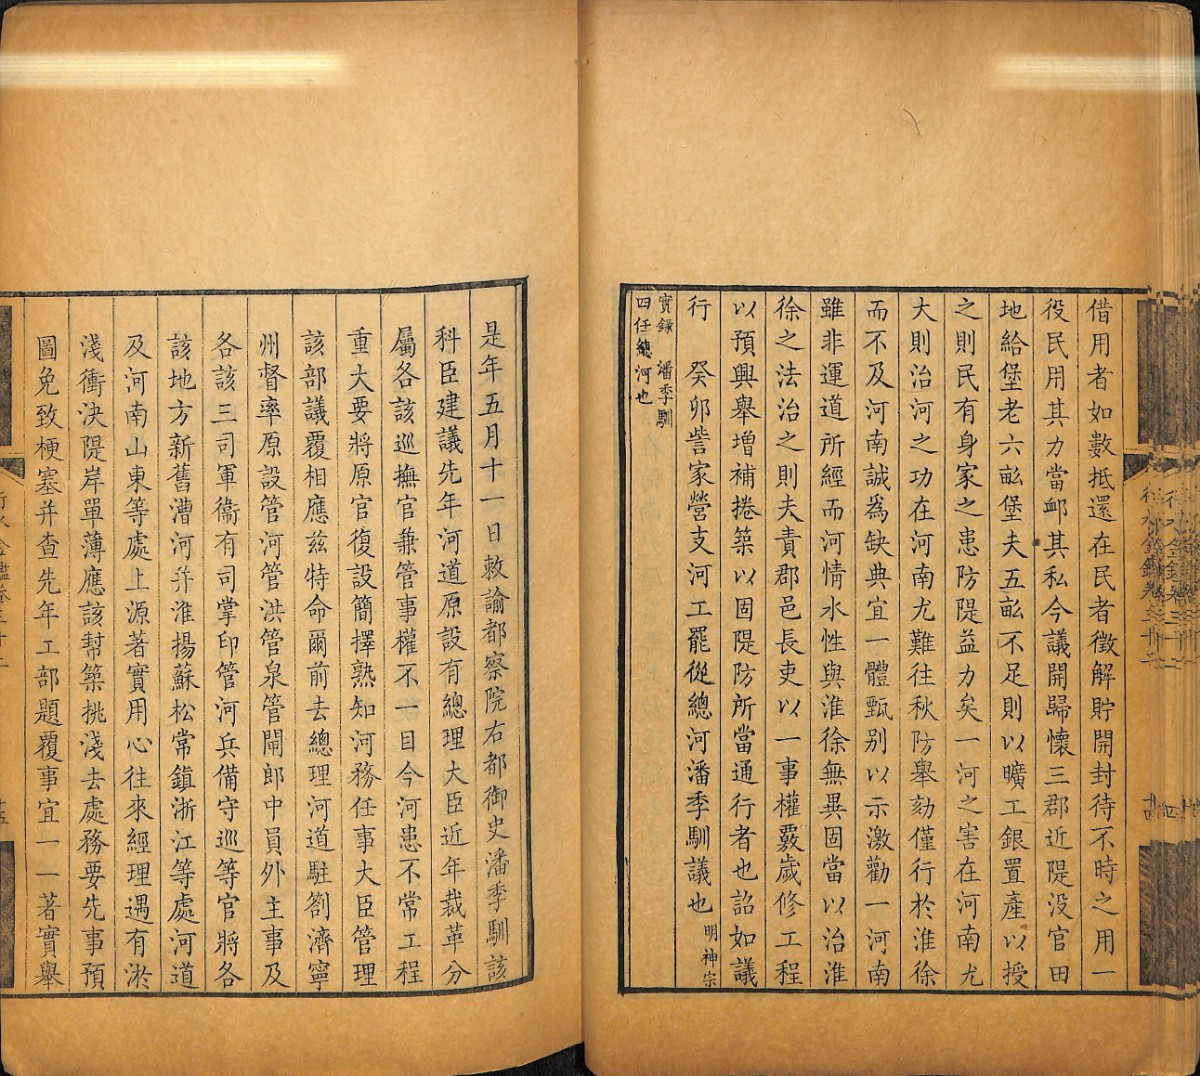 借用者如數抵還在民者徵解貯開封待不時之用一
役民用其力當䘏其私今議開歸懷三郡近隄没官田
地給堡老六畝堡夫五畝不足則以曠工銀置產以授
之則民有身家之患防隄益力矣一河之害在河南尤
大則治河之功在河南尤難往秋防舉劾僅行於淮徐
而不及河南誠爲缺典宜一體甄别以示激勸一河南
雖非運道所經而河情水性與淮徐無異固當以治淮
徐之法治之則夫責郡邑長吏以一事權覈歲修工程
以預興舉增補捲築以固隄防所當通行者也詔如議
行 癸卯訾家營支河工罷從總河潘季馴議也 明神宗
實錄 潘季馴
四任總河也
是年五月十一日敕諭都察院右都御史潘季馴該
科臣建議先年河道原設有總理大臣近年裁革分
屬各該巡撫官兼管事權不一目今河患不常工程
重大要將原官復設簡擇熟知河務任事大臣管理
該部議覆相應兹特命爾前去總理河道駐劄濟寧
州督率原設管河管洪管泉管閘郎中員外主事及
各該三司軍衞有司掌印管河兵備守巡等官將各
該地方新舊漕河并淮揚蘇松常鎮浙江等處河道
及河南山東等處上源著實用心往來經理遇有淤
淺衝決隄岸單薄應該幇築挑淺去處務要先事預
圖免致梗塞并查先年工部題覆事宜一一著實舉